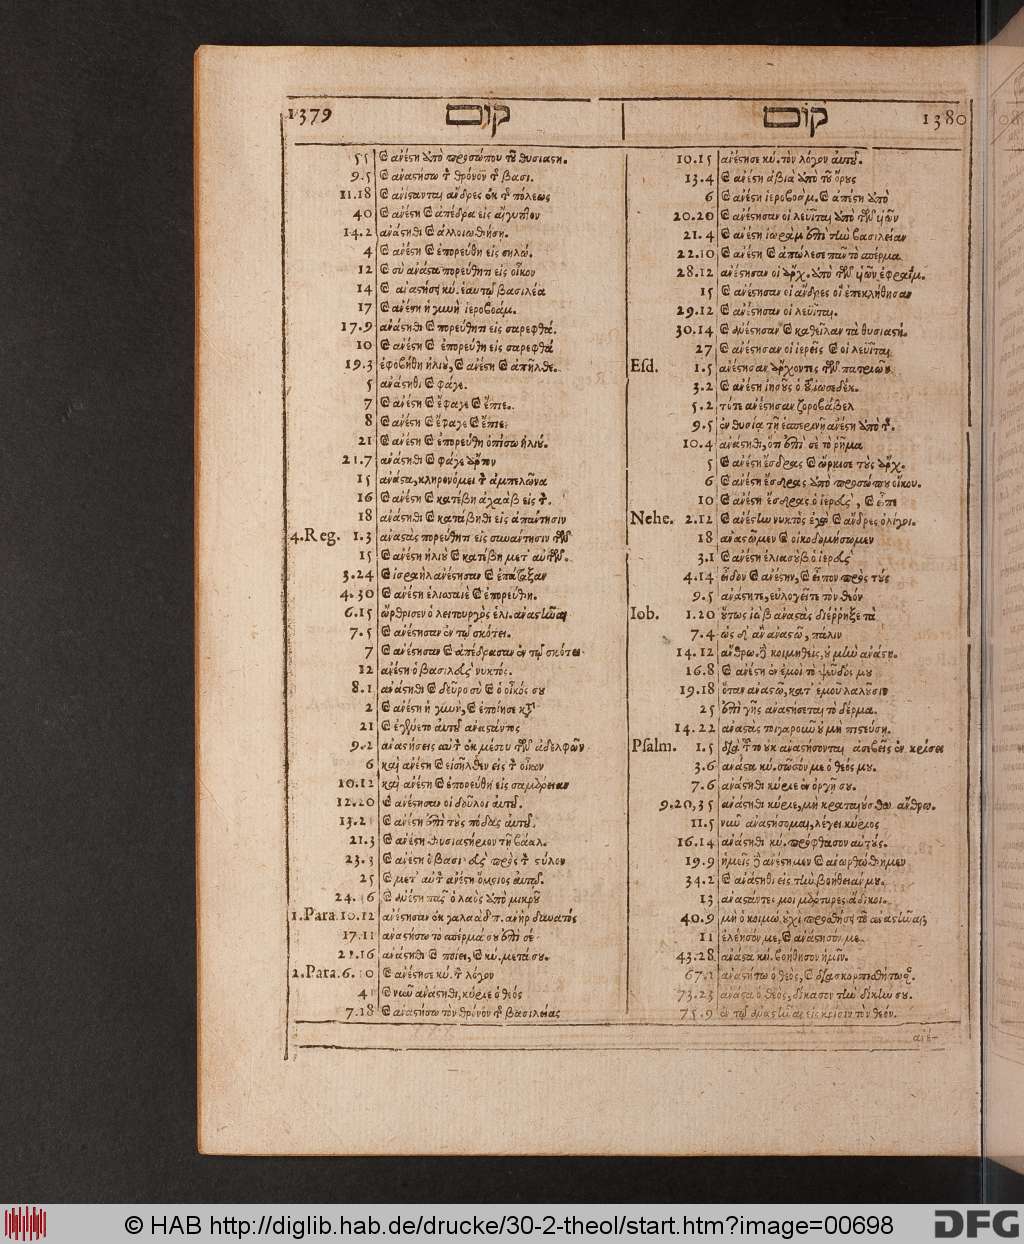 1379 קום
55 ϗ ἀνέστη ἀπὸ προσώπου τοῦ θυσιαστη.
9.5 ϗ ἀναστήσω τ θρόνον τ βασι.
11.18 ϗ ἀνίστανται ἄνδρες ἐκ τ πόλεως
40 ϗ ἀνέστη ϗ ἀπέδρα εἰς αἴγυπτον
14.2 ἀνάστηθι ϗ ἀλλοιωθήση.
4 ϗ ἀνέστη ϗ ἐπορεύθη εἰς σηλώ.
12 ϗ σὺ ἀνάστα πορεύθητι εἰς οἶκον
14 ϗ ἀναστήσει κύ. ἑαυτῷ βασιλέα
17 ϗ ἀνέστη ἡ γυνὴ ἱεροβοάμ.
17.9 ἀνάστηθι ϗ πορεύθητι εἰς σαρεφθά.
10 ϗ ἀνέστη ϗ ἐπορεύθη εἰς σαρεφθά
19.3 ἐφοβήθη ἠλιοὺ, ϗ ἀνέστη ϗ ἀπῆλθε.
5 ἀνάστηθι ϗ φάγε.
7 ϗ ἀνέστη ϗ ἔφαγε ϗ ἔπιε.
8 ϗ ἀνέστη ϗ ἔφαγε ϗ ἔπιε.
21 ϗ ἀνέστη ϗ ἐπορεύθη ὀπίσω ἠλιού.
21.7 ἀνάστηθι ϗ φάγε ἄρτον
15 ἀνάστα, κληρονόμει τ ἀμπελῶνα
16 ϗ ἀνέστη ϗ κατέβη ἀχαὰβ εἰς τ.
18 ἀνάστηθι ϗ κατάβηθι εἰς ἀπάντησιν
4.Reg. 1.3 ἀναστὰς πορεύθητι εἰς συνάντησιν τῶν
15 ϗ ἀνέστη ἠλιοὺ ϗ κατέβη μετ' αὐτῶν.
3.24 ϗ ἰσραὴλ ἀνέστησαν ϗ ἐπάταξαν
4.30 ϗ ἀνέστη ἐλισσαιὲ ϗ ἐπορεύθη.
6.15 ὤρθρισεν ὁ λειτουργὸς ἐλι. ἀναστῆναι
7.5 ϗ ἀνέστησαν ἐν τῷ σκότει.
7 ϗ ἀνέστησαν ϗ ἀπέδρασαν ἐν τῷ σκότει.
12 ἀνέστη ὁ βασιλεὺς νυκτός.
8.1 ἀνάστηθι ϗ δεῦρο σὺ ϗ ὁ οἶκός σου
2 ϗ ἀνέστη ἡ γυνὴ, ϗ ἐποίησε κτ
21 ϗ ἐγένετο αὐτοῦ ἀναστάντος
9.2 ἀναστήσεις αὐτ ἐκ μέσου τῶν ἀδελφῶν.
6 καὶ ἀνέστη ϗ εἰσῆλθεν εἰς τ οἶκον
10.12 καὶ ἀνέστη ϗ ἐπορεύθη εἰς σαμάρειαν
12.20 ϗ ἀνέστησαν οἱ δοῦλοι αὐτοῦ.
13.21 ϗ ἀνέστη ἐπὶ τοὺς πόδας αὐτοῦ.
21.3 ϗ ἀνέστη θυσιαστήριον τῇ βάαλ.
23.3 ϗ ἀνέστη ὁ βασιλεὺς πρὸς τ στύλον
25 ϗ μετ' αὐτ ἀνέστη ὅμοιος αὐτῷ.
24.26 ϗ ἀνέστη πᾶς ὁ λαὸς ἀπὸ μικροῦ
1.Para. 10.12 ἀνέστησαν ἐκ γαλαὰδ π. ἀνὴρ δυνατὸς
17.11 ἀναστήσω τὸ σπέρμα σου ἐπὶ σὲ
22.16 ἀνάστηθι ϗ ποίει, ϗ κύ. μετά σου.
2.Para. 6.10 ϗ ἀνέστησε κύ. τ λόγον
41 ϗ νῦν ἀνάστηθι, κύριε ὁ θεός
7.18 ϗ ἀναστήσω τὸν θρόνον τ βασιλείας
קום 1380
10.15 ἀνέστησε κύ. τὸν λόγον αὐτοῦ.
13.4 ϗ ἀνέστη ἀβιὰ ἀπὸ τοῦ ὄρους
6 ϗ ἀνέστη ἱεροβοάμ. ϗ ἀπέστη ἀπὸ
20.20 ϗ ἀνέστησαν οἱ λευῖται ἀπὸ τῶν υἱῶν
21.4 ϗ ἀνέστη ἰωρὰμ ἐπὶ τὴν βασιλείαν
22.10 ϗ ἀνέστη ϗ ἀπώλεσε πᾶν τὸ σπέρμα
28.12 ἀνέστησαν οἱ ἄρχ. ἀπὸ τῶν υἱῶν ἐφραΐμ.
15 ϗ ἀνέστησαν οἱ ἄνδρες οἳ ἐπεκλήθησαν
29.12 ϗ ἀνέστησαν οἱ λευῖται.
30.14 ϗ ἀνέστησαν ϗ καθεῖλαν τὰ θυσιαστή.
27 ϗ ἀνέστησαν οἱ ἱερεῖς ϗ οἱ λευῖται
Esd. 1.5 ἀνέστησαν ἄρχοντες τῶν πατριῶν
3.2 ϗ ἀνέστη ἰησοῦς ὁ τ ἰωσεδέκ.
5.2 τότε ἀνέστησαν ζοροβάβελ
9.5 ἐν θυσίᾳ τῇ ἑσπερινῇ ἀνέστην ἀπὸ τ.
10.4 ἀνάστηθι, ὅτι ἐπὶ σὲ τὸ ῥῆμα
5 ϗ ἀνέστη ἔσδρας ϗ ὥρκισε τοὺς ἄρχ.
6 ϗ ἀνέστη ἔσδρας ἀπὸ προσώπου οἴκου.
10 ϗ ἀνέστη ἔσδρας ὁ ἱερεὺς, ϗ εἶπε
Nehe. 2.12 ϗ ἀνέστην νυκτὸς ἐγὼ ϗ ἄνδρες ὀλίγοι.
18 ἀναστῶμεν ϗ οἰκοδομήσωμεν
3.1 ϗ ἀνέστη ἐλιασοὺβ ὁ ἱερεὺς
4.14 εἶδον ϗ ἀνέστην, ϗ εἶπον πρὸς τοὺς
9.5 ἀνάστητε, εὐλογεῖτε τὸν θεόν
Iob. 1.20 οὕτως ἰὼβ ἀναστὰς διέρρηξε τὰ
7.4 ὡς δ' ἂν ἀναστῶ, πάλιν
14.12 ἄνθρω. δὲ κοιμηθεὶς, οὐ μὴν ἀνάστ.
16.8 ϗ ἀνέστη ἐν ἐμοὶ τὸ ψεῦδός μου
19.18 ὅταν ἀναστῶ, κατ' ἐμοῦ λαλοῦσιν
25 ἐπὶ γῆς ἀναστήσεται τὸ δέρμα.
14.22 ἀναστὰς τοιγαροῦν οὐ μὴ πιστεύση.
Psalm. 1.5 διὰ τοῦτο οὐκ ἀναστήσονται ἀσεβεῖς ἐν κρίσει
3.6 ἀνάστα κύ. σῶσόν με ὁ θεός μου.
7.6 ἀνάστηθι κύριε ἐν ὀργῇ σου.
9.20,35 ἀνάστηθι κύριε, μὴ κραταιούσθω ἄνθρω.
11.5 νῦν ἀναστήσομαι, λέγει κύριος
16.14 ἀνάστηθι κύ. πρόφθασον αὐτούς.
19.9 ἡμεῖς δὲ ἀνέστημεν ϗ ἀνωρθώθημεν
34.2 ϗ ἀνάστηθι εἰς τὴν βοήθειάν μου.
13 ἀναστάντες μοι μάρτυρες ἄδικοι.
40.9 μὴ ὁ κοιμώ. οὐχὶ προσθήσει τοῦ ἀναστῆναι
11 ἐλέησόν με, ϗ ἀνάστησόν με.
43.28 ἀνάστα κύ. βοήθησον ἡμῖν.
67.1 ἀναστήτω ὁ θεὸς, ϗ διασκορπισθήτωσ.
73.23 ἀνάστα ὁ θεὸς, δίκασον τὴν δίκην σου.
75.9 ἐν τῷ ἀναστῆναι εἰς κρίσιν τὸν θεόν.
© HAB http://diglib.hab.de/drucke/30-2-theol/start.htm?image=00698
DFG